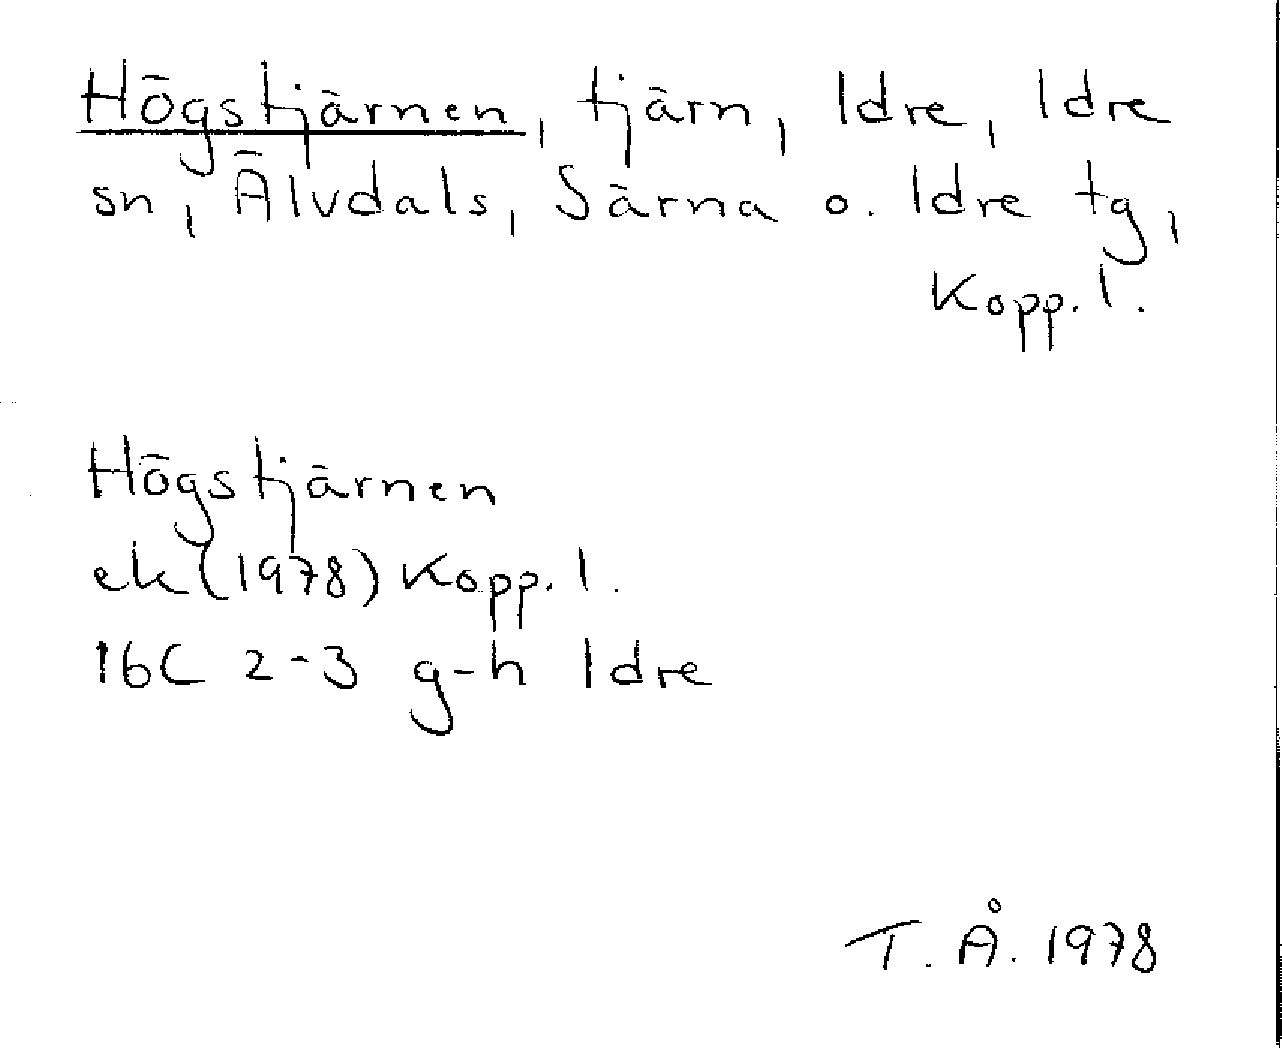 Högstjärnen, tjärn, Idre, Idre
sn, Älvdals, Särna o. Idre tg,
Kopp. l.
Högstjärnen
ek (1978) Kopp. l.
16C 2-3 g-h Idre
T. Å. 1978